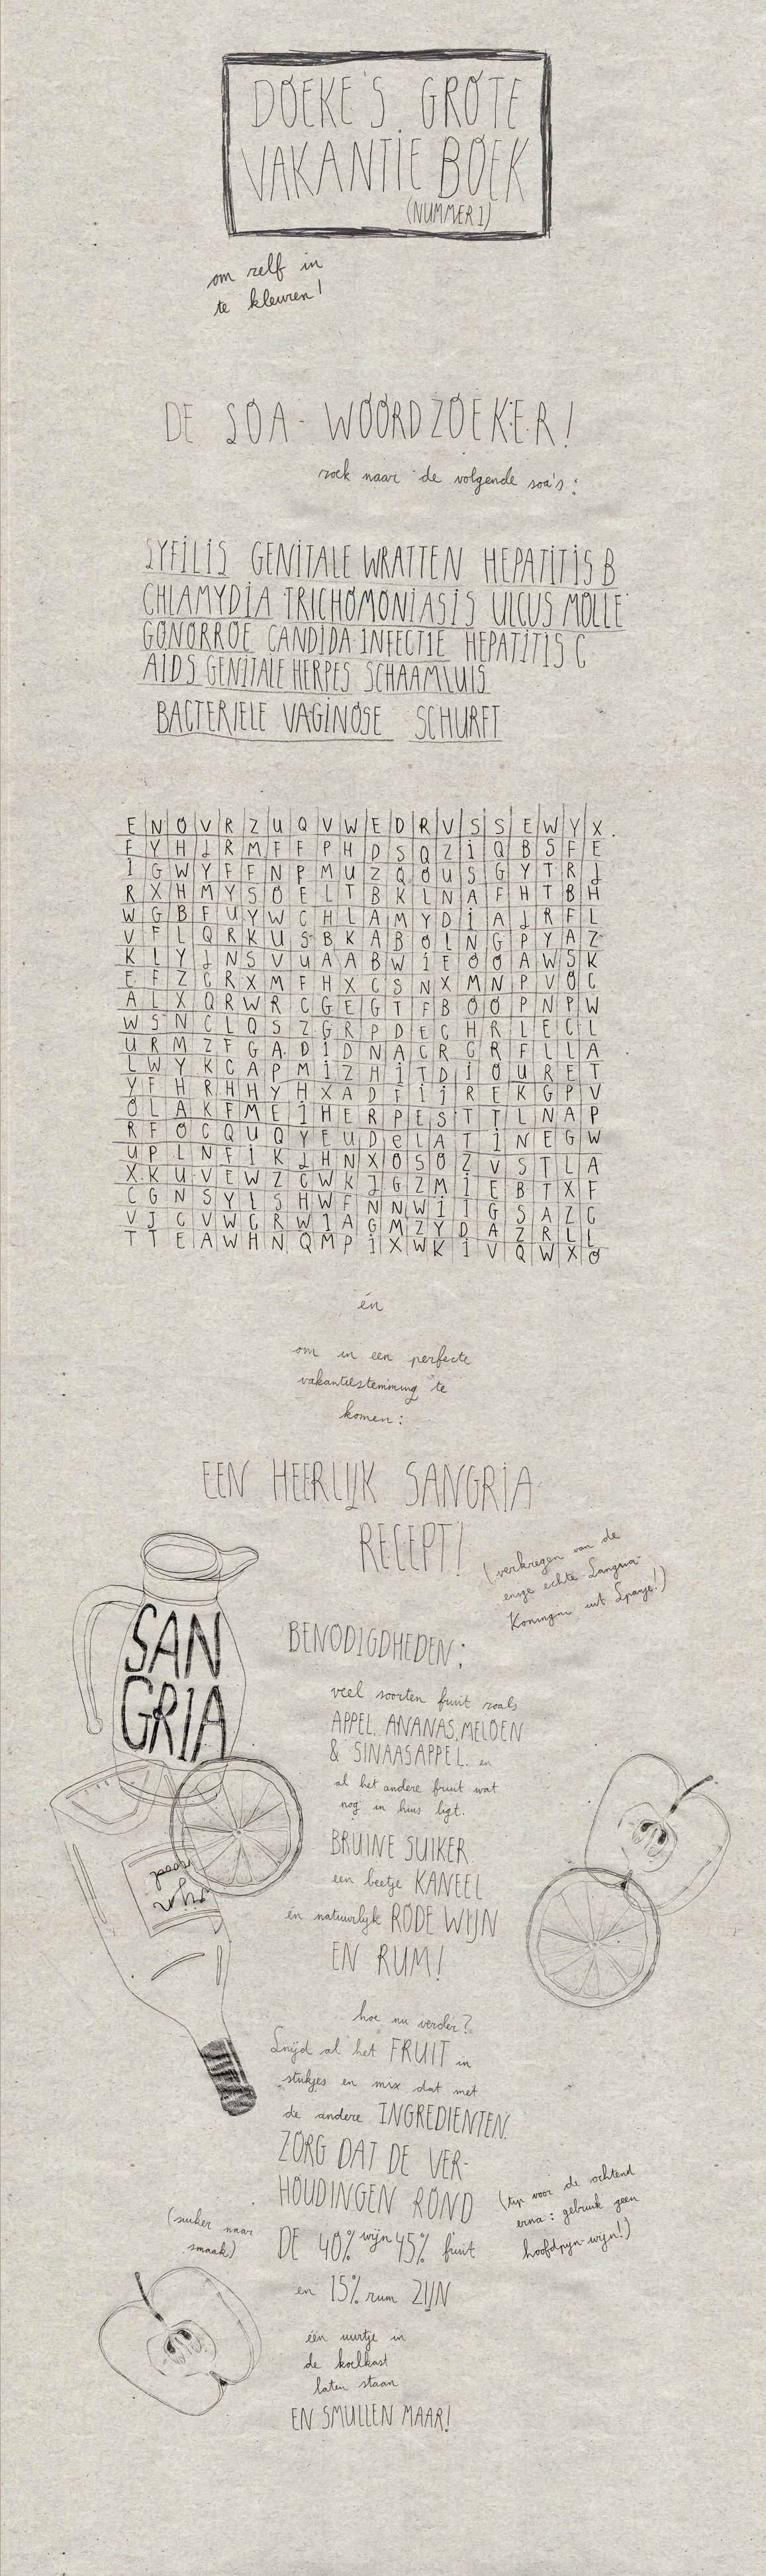 DOEKE'S GROTE
VAKANTIE BOEK
(NUMMER 1)
om zelf in
te kleuren!
DE SOA-WOORDZOEKER!
zoek naar de volgende soa's:
SYFILIS GENITALE WRATTEN HEPATITIS B
CHLAMYDIA TRICHOMONIASIS ULCUS MOLLE
GONORROE CANDIDA-INFECTIE HEPATITIS C
AIDS GENITALE HERPES SCHAAMLUIS
BACTERIELE VAGINOSE SCHURFT
E N O V R Z U Q V W E D R V S S E W Y X
F Y H J R M F F P H D S Q Z I Q B S F E
I G W Y F F N P M U Z Q O U S G Y T R J
R X H M Y S O E L T B K L N A F H T B H
W G B F U Y W C H L A M Y D I A J R F L
V F L Q R K U S B K A B O L N G P Y A Z
K L Y J N S V U A A B W I E O O A W S K
E F Z C R X M F H X C S N X M N P V O C
A L X Q R W R C G E G T F B O O P N P W
W S N C L Q S Z G R P D E C H R L E C L
U R M Z F G A D I D N A C R C R F L L A
L W Y K C A P M I Z H I T D I O U R E T
Y F H R H H Y H X A D F I J R E K G P V
O L A K F M E I H E R P E S T T L N A P
R F O C Q U Q Y E U D e L A T I N E G W
U P L N F I K J H N X O S O Z V S T L A
X K U V E W Z C W K J G Z M I E B T X F
C G N S Y L S H W F N N W I I G S A Z C
V J C V W C R W I A G M Z Y D A Z R L L
T T E A W H N Q M P I X W K I V Q W X O
én
om in een perfecte
vakantiestemming te
komen:
EEN HEERLIJK SANGRIA
RECEPT!
(verkregen van de
enige echte Sangria-
Koningin uit Spanje!)
SAN
GRIA
BENODIGDHEDEN:
veel soorten fruit zoals
APPEL, ANANAS, MELOEN
& SINAASAPPEL. en
al het andere fruit wat
nog in huis ligt.
BRUINE SUIKER
een beetje KANEEL
én natuurlijk RODE WIJN
EN RUM!
rood
wijn
hoe nu verder?
Snijd al het FRUIT in
stukjes en mix dat met
de andere INGREDIENTEN.
ZORG DAT DE VER-
HOUDINGEN ROND
DE 40% wijn 45% fruit
en 15% rum ZIJN
(suiker naar
smaak)
(tip voor de ochtend
erna: gebruik geen
hoofdpijn-wijn!)
één uurtje in
de koelkast
laten staan
EN SMULLEN MAAR!